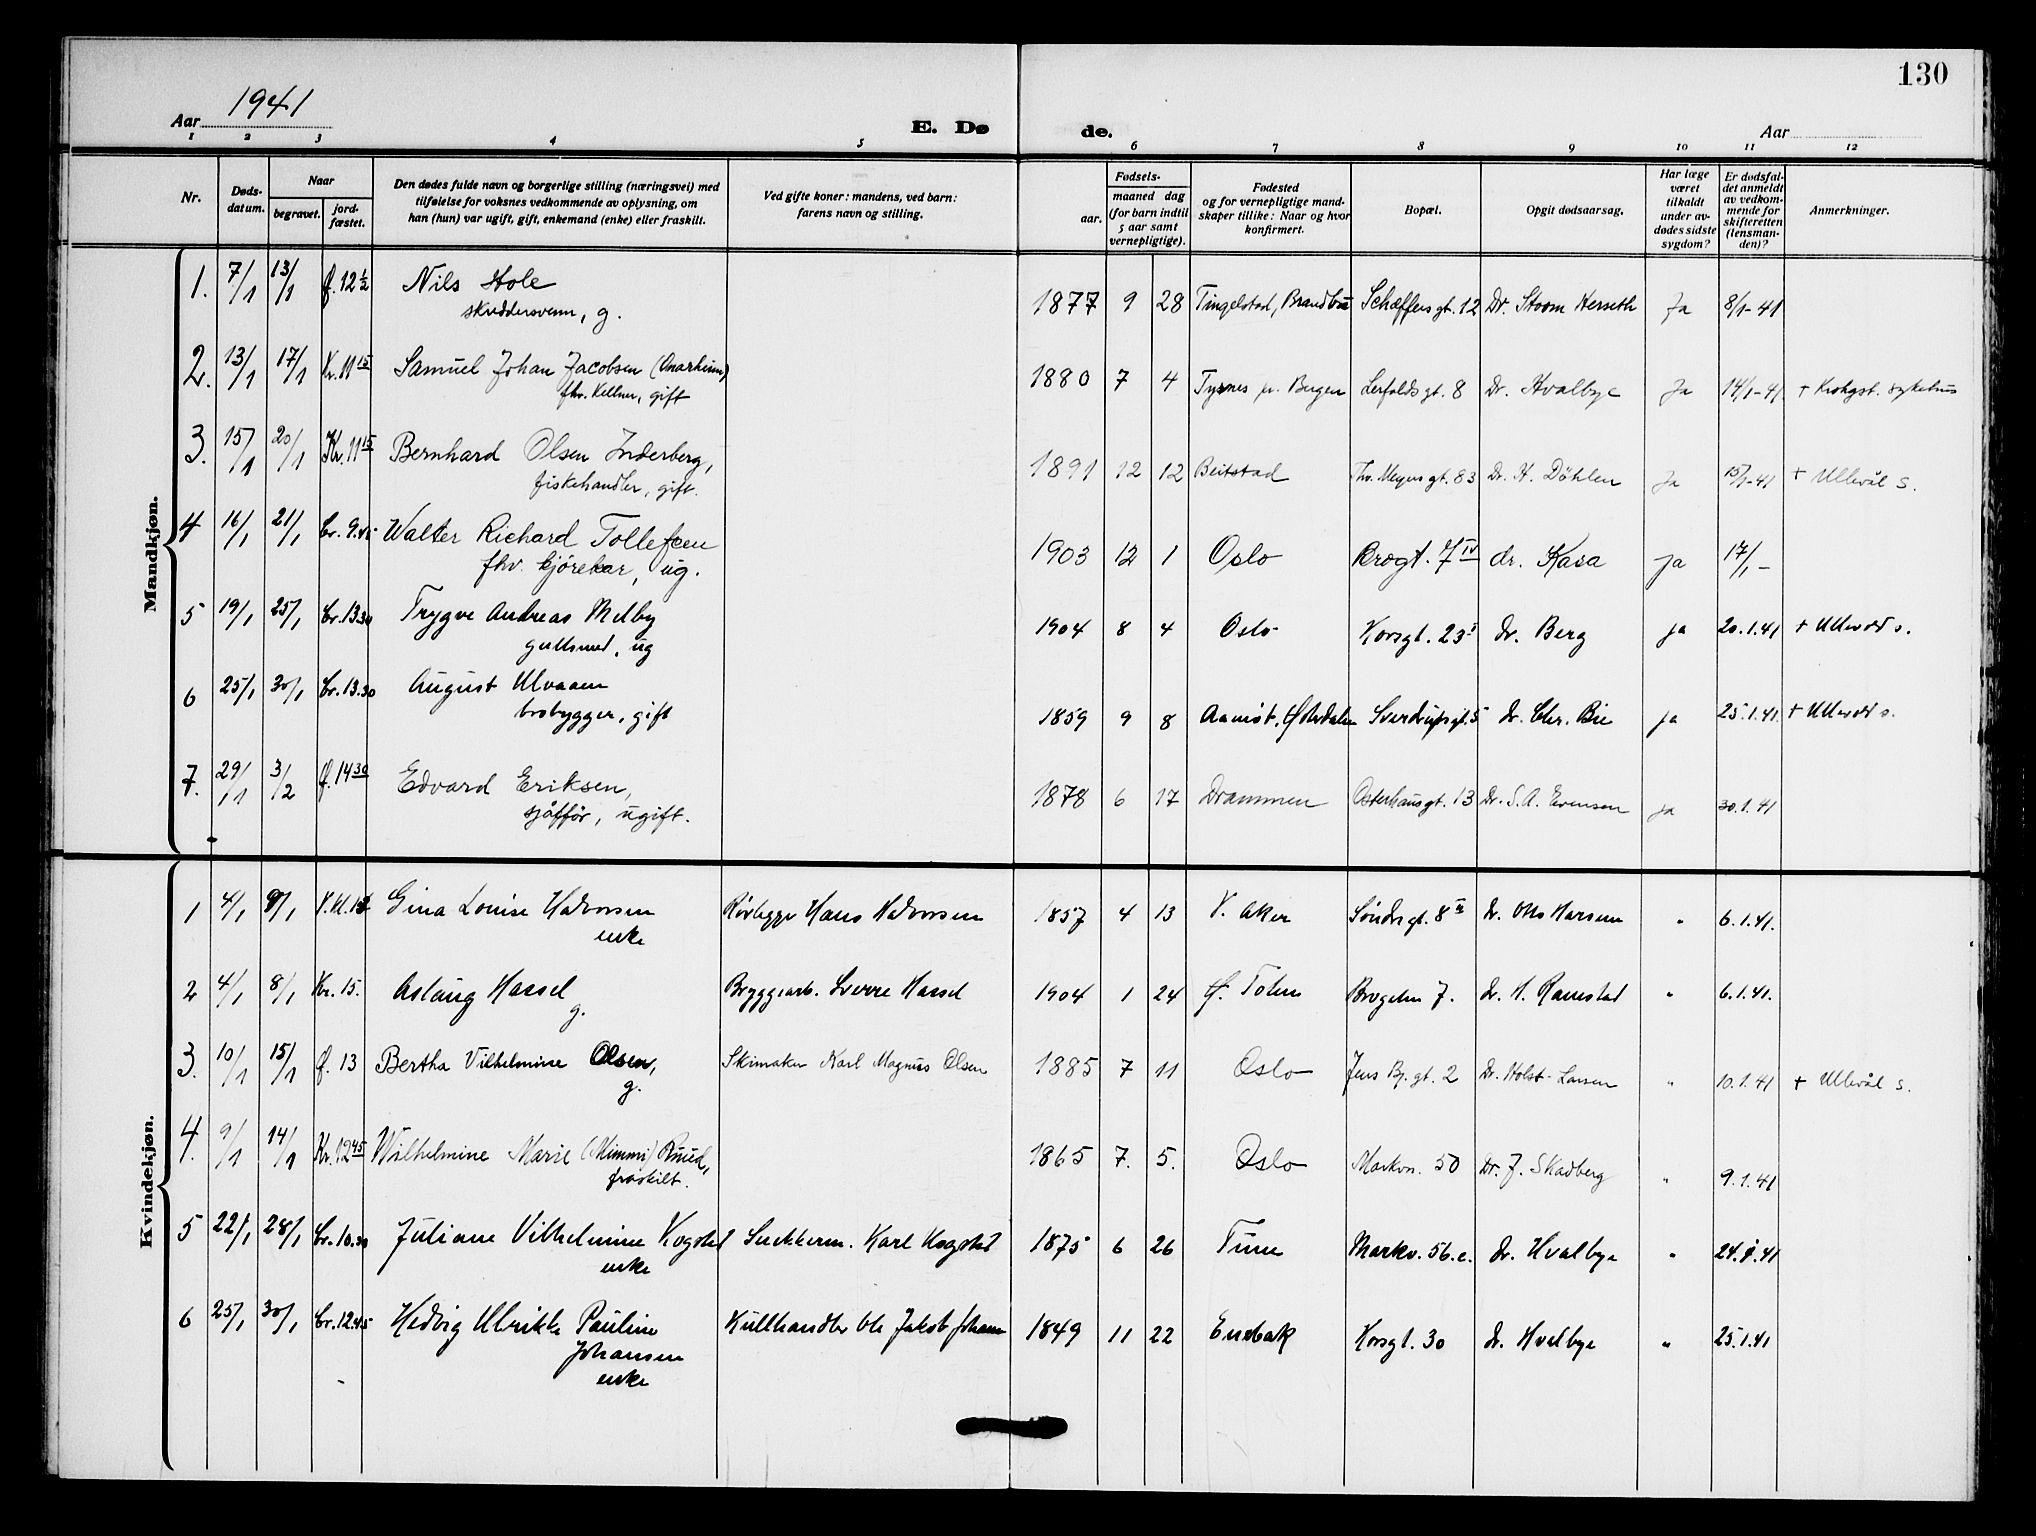 130
Aar 1941
E. Dø de.
Aar
1 2 3 4 5 6 7 8 9 10 11 12
Nr.
Døds-
datum.
Naar
begravet.
jord-
fæstet.
Den dødes fulde navn og borgerlige stilling (næringsvei) med
tilføielse for voksnes vedkommende av oplysning, om
han (hun) var ugift, gift, enkemand (enke) eller fraskilt.
Ved gifte koner: mandens, ved barn:
farens navn og stilling.
Fødsels-
aar.
maaned dag
(for barn indtil
5 aar samt
vernepligtige).
Fødested
og for vernepligtige mand-
skaper tillike: Naar og hvor
konfirmert.
Bopæl.
Opgit dødsaarsag.
Har læge
været
tilkaldt
under av-
dødes sidste
sygdom?
Er dødsfal-
det anmeldt
av vedkom-
mende for
skifteretten
(lensman-
den)?
Anmerkninger.
Mandkjøn.
1. 7/1 13/1 f. 12 1/2 Nils Hole 1877 9 28 Tingelstad, Brandbu Schæffersgt. 12 Dr. Stoom Herseth Ja 8/1-41
skreddersvenn, g.
2. 13/1 17/1 Kr. 11 15 Samuel Johan Jacobsen 1880 7 4 Tysnes pr. Bergen Lerfaldsgt. 8 Dr. Hvalbye Ja 14/1-41 + Krohgst. sykehus
fhv. Kellner, gift
3. 15/1 20/1 Kr. 11 15 Bernhard Olsen Inderberg, 1891 12 12 Beitstad Thv. Meyersgt. 83 Dr. H. Döhlen Ja 15/1-41 + Ullevål s.
fiskehandler, gift.
4 16/1 21/1 Cr. 9.45 Walter Richard Tollefsen 1903 12 1 Oslo Krogt. 7 IV dr. Kasa ja 17/1-
fhv. kjørekar, ug.
5 19/1 25/1 Cr. 13.30 Trygve Andreas Melby 1904 8 4 Oslo Korsgt. 23 I dr. Berg ja 20.1.41 + Ullevål s.
gullsmed, ug
6 25/1 30/1 Cr. 13.30 August Ulvaaen 1859 9 8 Aamot, Østerdalen Sverdrupsgt. 5 dr. Chr. Bie ja 25.1.41 + Ullevål s.
brobygger, gift
7. 29/1 3/2 f. 14 30 Edvard Eriksen, 1878 6 17 Drammen Osterhausgt. 13 Dr. S. A. Evensen ja 30.1.41
sjåffør, ugift.
Kvindekjøn.
1 4/1 9/1 V. kl. 12 Gina Louise Halvorsen Rørlegger Hans Halvorsen 1857 4 13 V. Aker Søndregt. 8 dr. Ohs Hansen " 6.1.41.
enke
2 4/1 8/1 Kr. 15. Aslaug Hassel Bryggearb. Sverre Hassel 1904 1 24 Ø. Toten Brogaten 7. dr. H. Ramstad " 6.1.41.
g.
3. 10/1 15/1 f. 13 Bertha Vilhelmine Olsen, Skimaker Karl Magnus Olsen 1885 7 11 Oslo Jens Bj. gt. 2 Dr. Holst-Larsen " 10.1.41 + Ullevål s.
g.
4. 9/1 14/1 Kr. 12 45 Wilhelmine Marie (Mimmi) Ruud, 1865 7. 5. Oslo Markvn. 50 Dr. J. Skadberg " 9.1.41
fraskilt.
5 22/1 28/1 Cr. 10.30 Juliane Vilhelmine Kogstad Snekkerm. Karl Kogstad 1875 6 26 Tune Markv. 56.c. dr. Hvalbye " 24.1.41
enke
6 25/1 30/1 Cr. 12.45 Hedvig Ulrikke Pauline Kullhandler Ole Jakob Johansen 1849 11 22 Enebak Korsgt. 30 dr. Hvalbye " 25.1.41
Johansen
enke